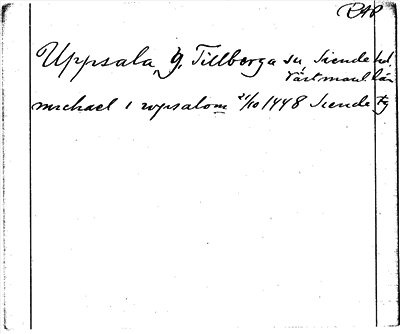 RAP
Uppsala, g, Tillberga sn, Siende hd,
Västmanl. län
michael i wpsalom 21/10 1448 Siende